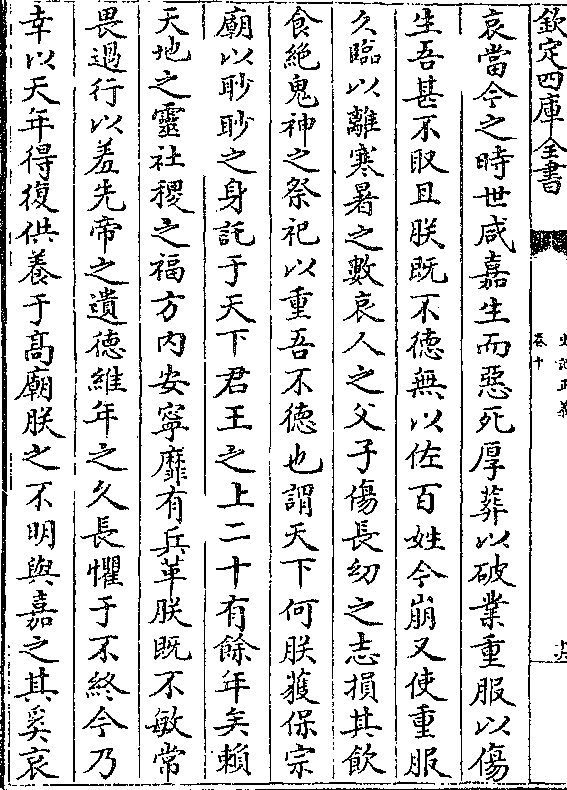 欽定四庫全書
史記正義
卷十
哀當今之時世咸嘉生而惡死厚葬以破業重服以傷
生吾甚不取且朕既不德無以佐百姓今崩又使重服
久臨以離寒暑之數哀人之父子傷長幼之志損其飲
食絶鬼神之祭祀以重吾不德也謂天下何朕獲保宗
廟以眇眇之身託于天下君王之上二十有餘年矣賴
天地之靈社稷之福方内安寧靡有兵革朕既不敏常
畏過行以羞先帝之遺德維年之久長懼于不終今乃
幸以天年得復供養于高廟朕之不明與嘉之其奚哀